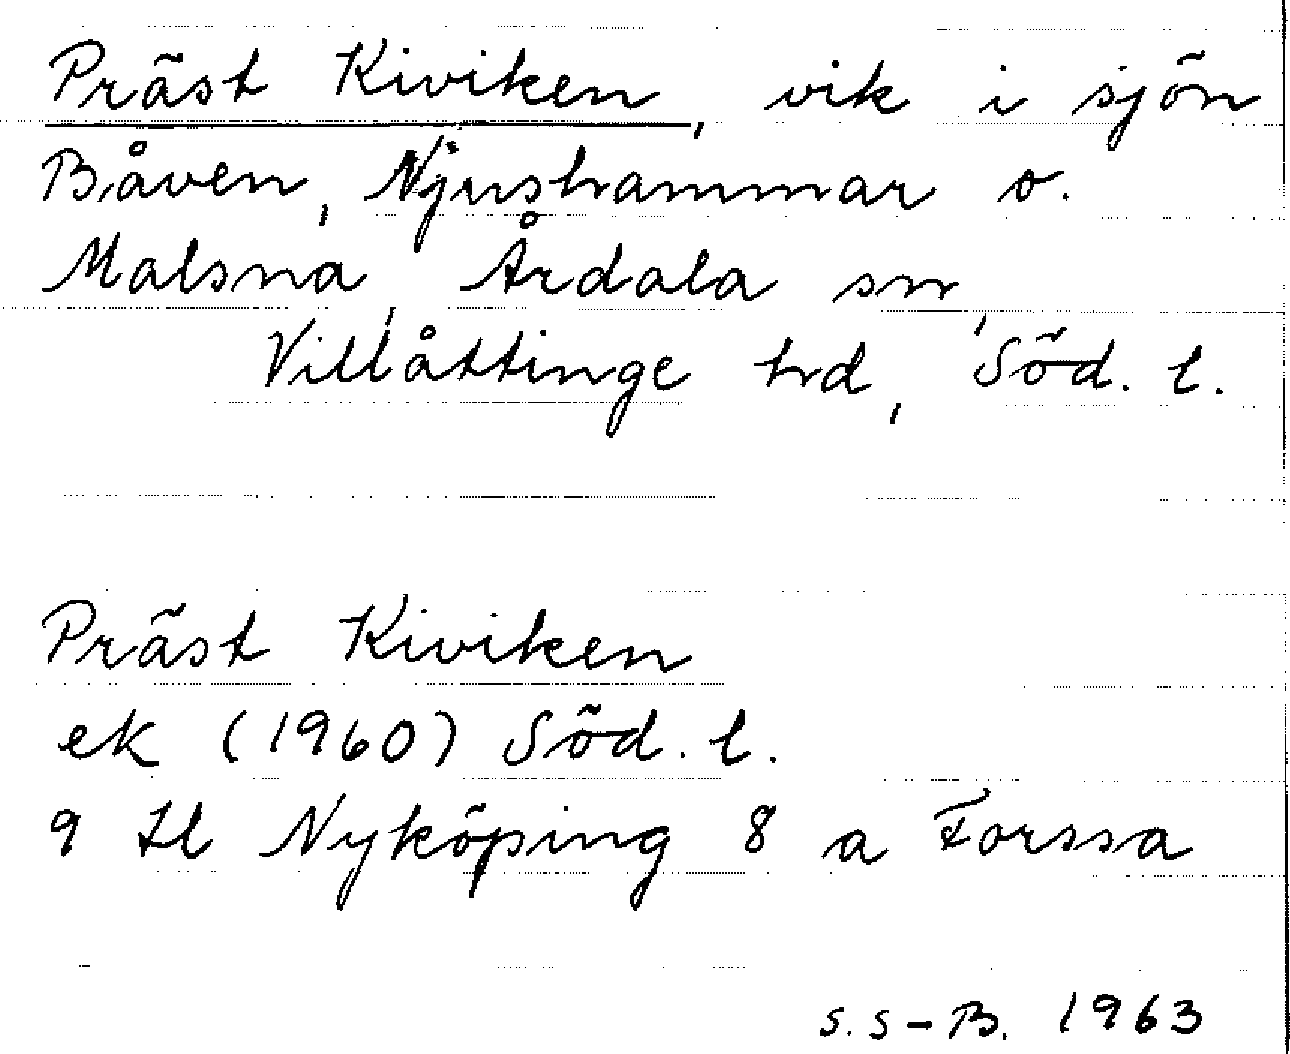 Präst Kiviken, vik i sjön
Båven, Njushammar o.
Malsna, Årdala sn,
Villåttinge hrd, Söd. l.
Präst Kiviken
ek (1960) Söd. l.
9 H Nyköping 8 a Forssa
S. S-B. 1963